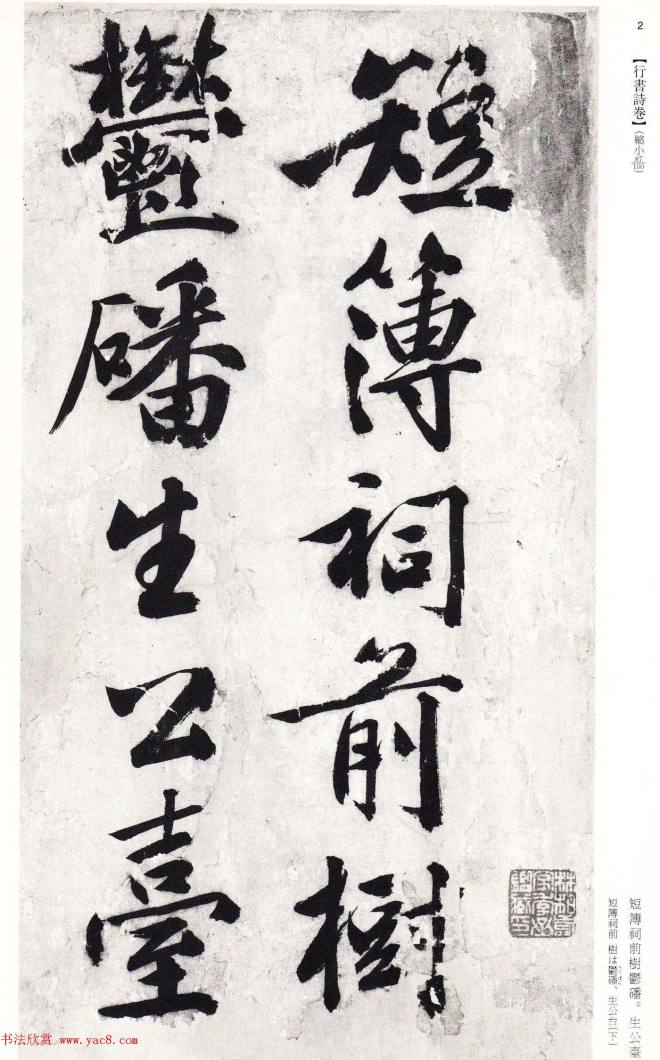 2
【行書詩巻】(縮小87/100)
短簿祠前樹
鬱磻生公臺
短簿祠前樹鬱磻。生公臺
短簿祠前 樹は鬱磻、生公台(下)
书法欣赏 www.yac8.com